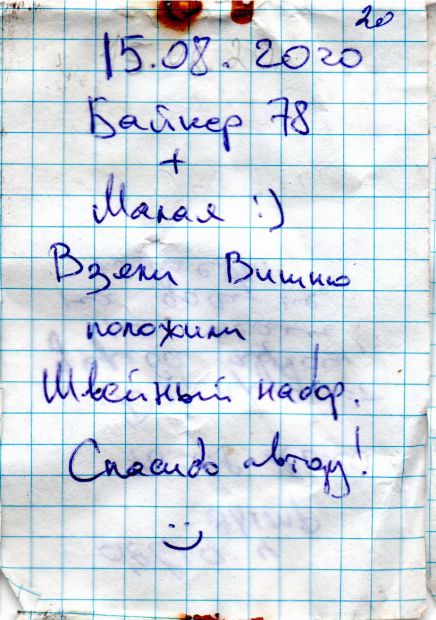 20
15.08.2020
Байкер 78
+
Малая :)
Взяли Вишню
положили
Швейный набор.
Спасибо автору!
:)